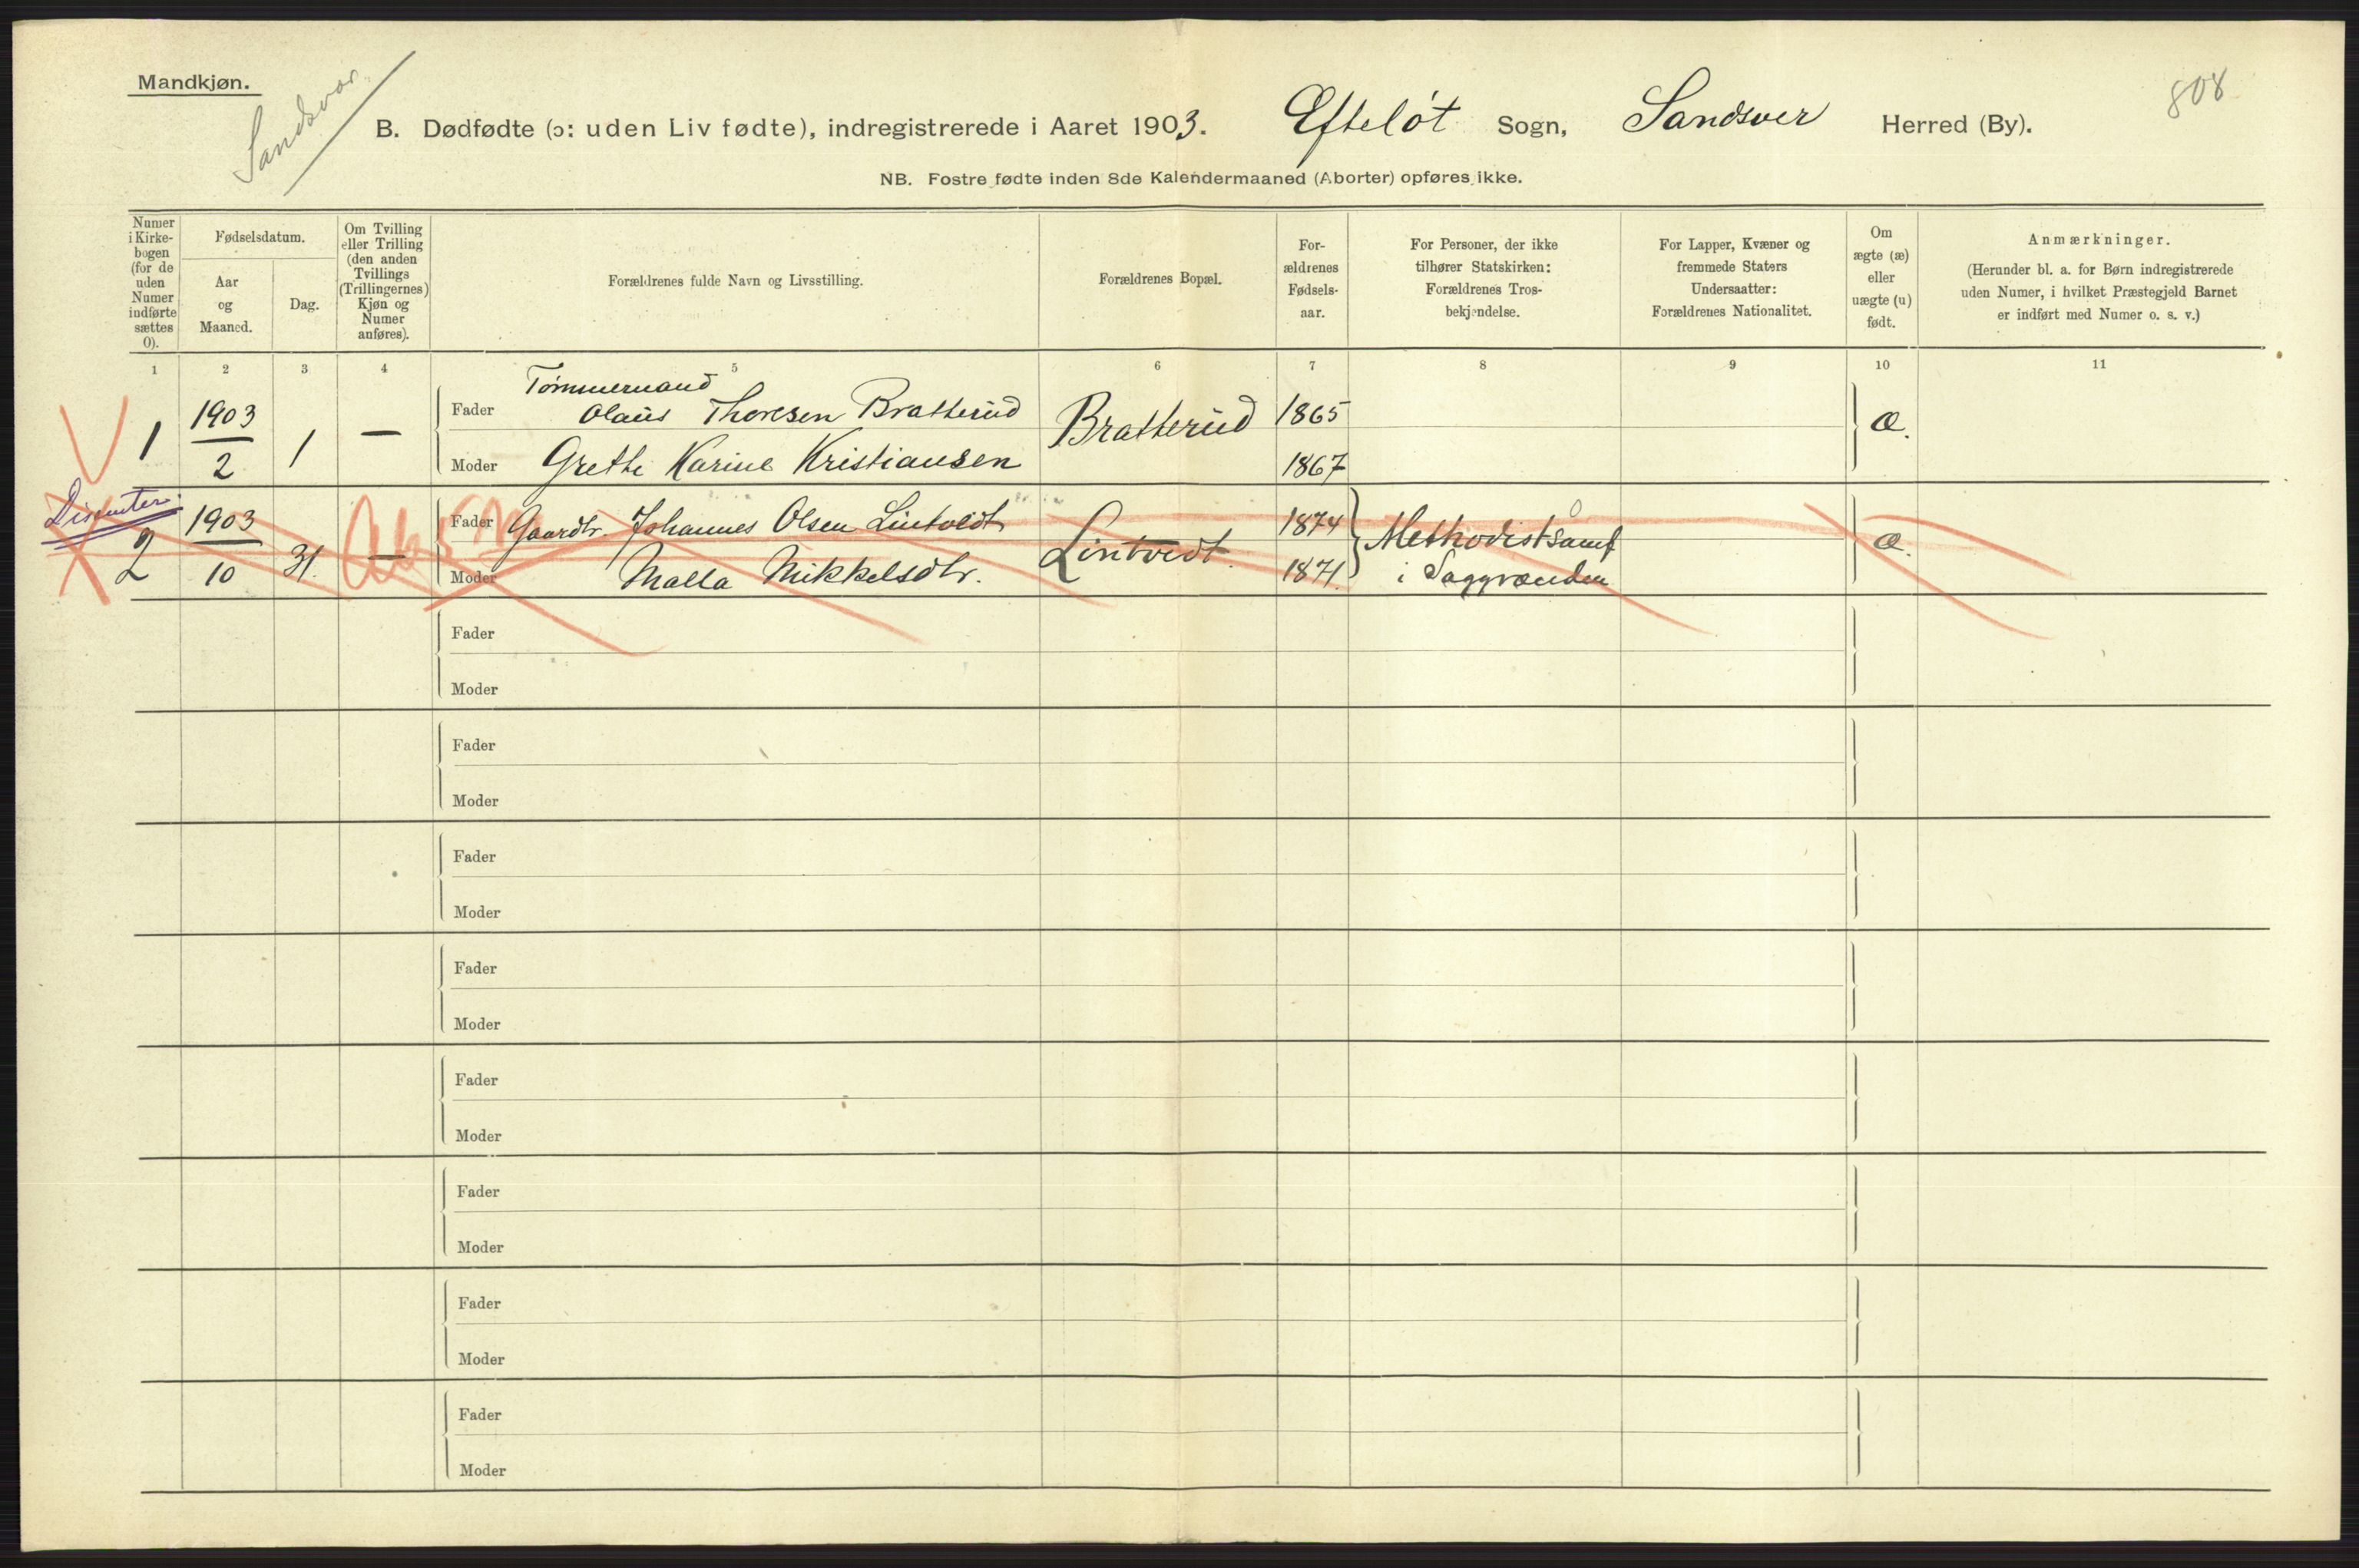 Mandkjøn.
Sandsvær.
808
B. Dødfødte (ɔ: uden Liv fødte), indregistrerede i Aaret 1903. Efteløt Sogn, Sandsver Herred (By).
NB. Fostre fødte inden 8de Kalendermaaned (Aborter) opføres ikke.
Numer i Kirkebogen (for de uden Numer indførte sættes 0).
Fødselsdatum.
Aar og Maaned.
Dag.
Om Tvilling eller Trilling (den anden Tvillings (Trillingernes) Kjøn og Numer anføres).
Forældrenes fulde Navn og Livsstilling.
Forældrenes Bopæl.
For-ældrenes Fødsels-aar.
For Personer, der ikke tilhører Statskirken: Forældrenes Tros-bekjendelse.
For Lapper, Kvæner og fremmede Staters Undersaatter: Forældrenes Nationalitet.
Om ægte (æ) eller uægte (u) født.
Anmærkninger.
(Herunder bl. a. for Børn indregistrerede uden Numer, i hvilket Præstegjeld Barnet er indført med Numer o. s. v.)
1 2 3 4 5 6 7 8 9 10 11
Tømmermand
1 1903 2 1 — Fader Olaus Thoresen Bratterud Bratterud 1865 æ.
Moder Grethe Karine Kristiansen 1867
Dissenter.
2 1903 10 31. — Fader Gaardbr. Johannes Olsen Lintvedt Lintvedt. 1874 Methodistsamf æ.
Moder Malla Mikkelsdtr. 1871. i Saggrænden
Fader
Moder
Fader
Moder
Fader
Moder
Fader
Moder
Fader
Moder
Fader
Moder
Fader
Moder
Fader
Moder